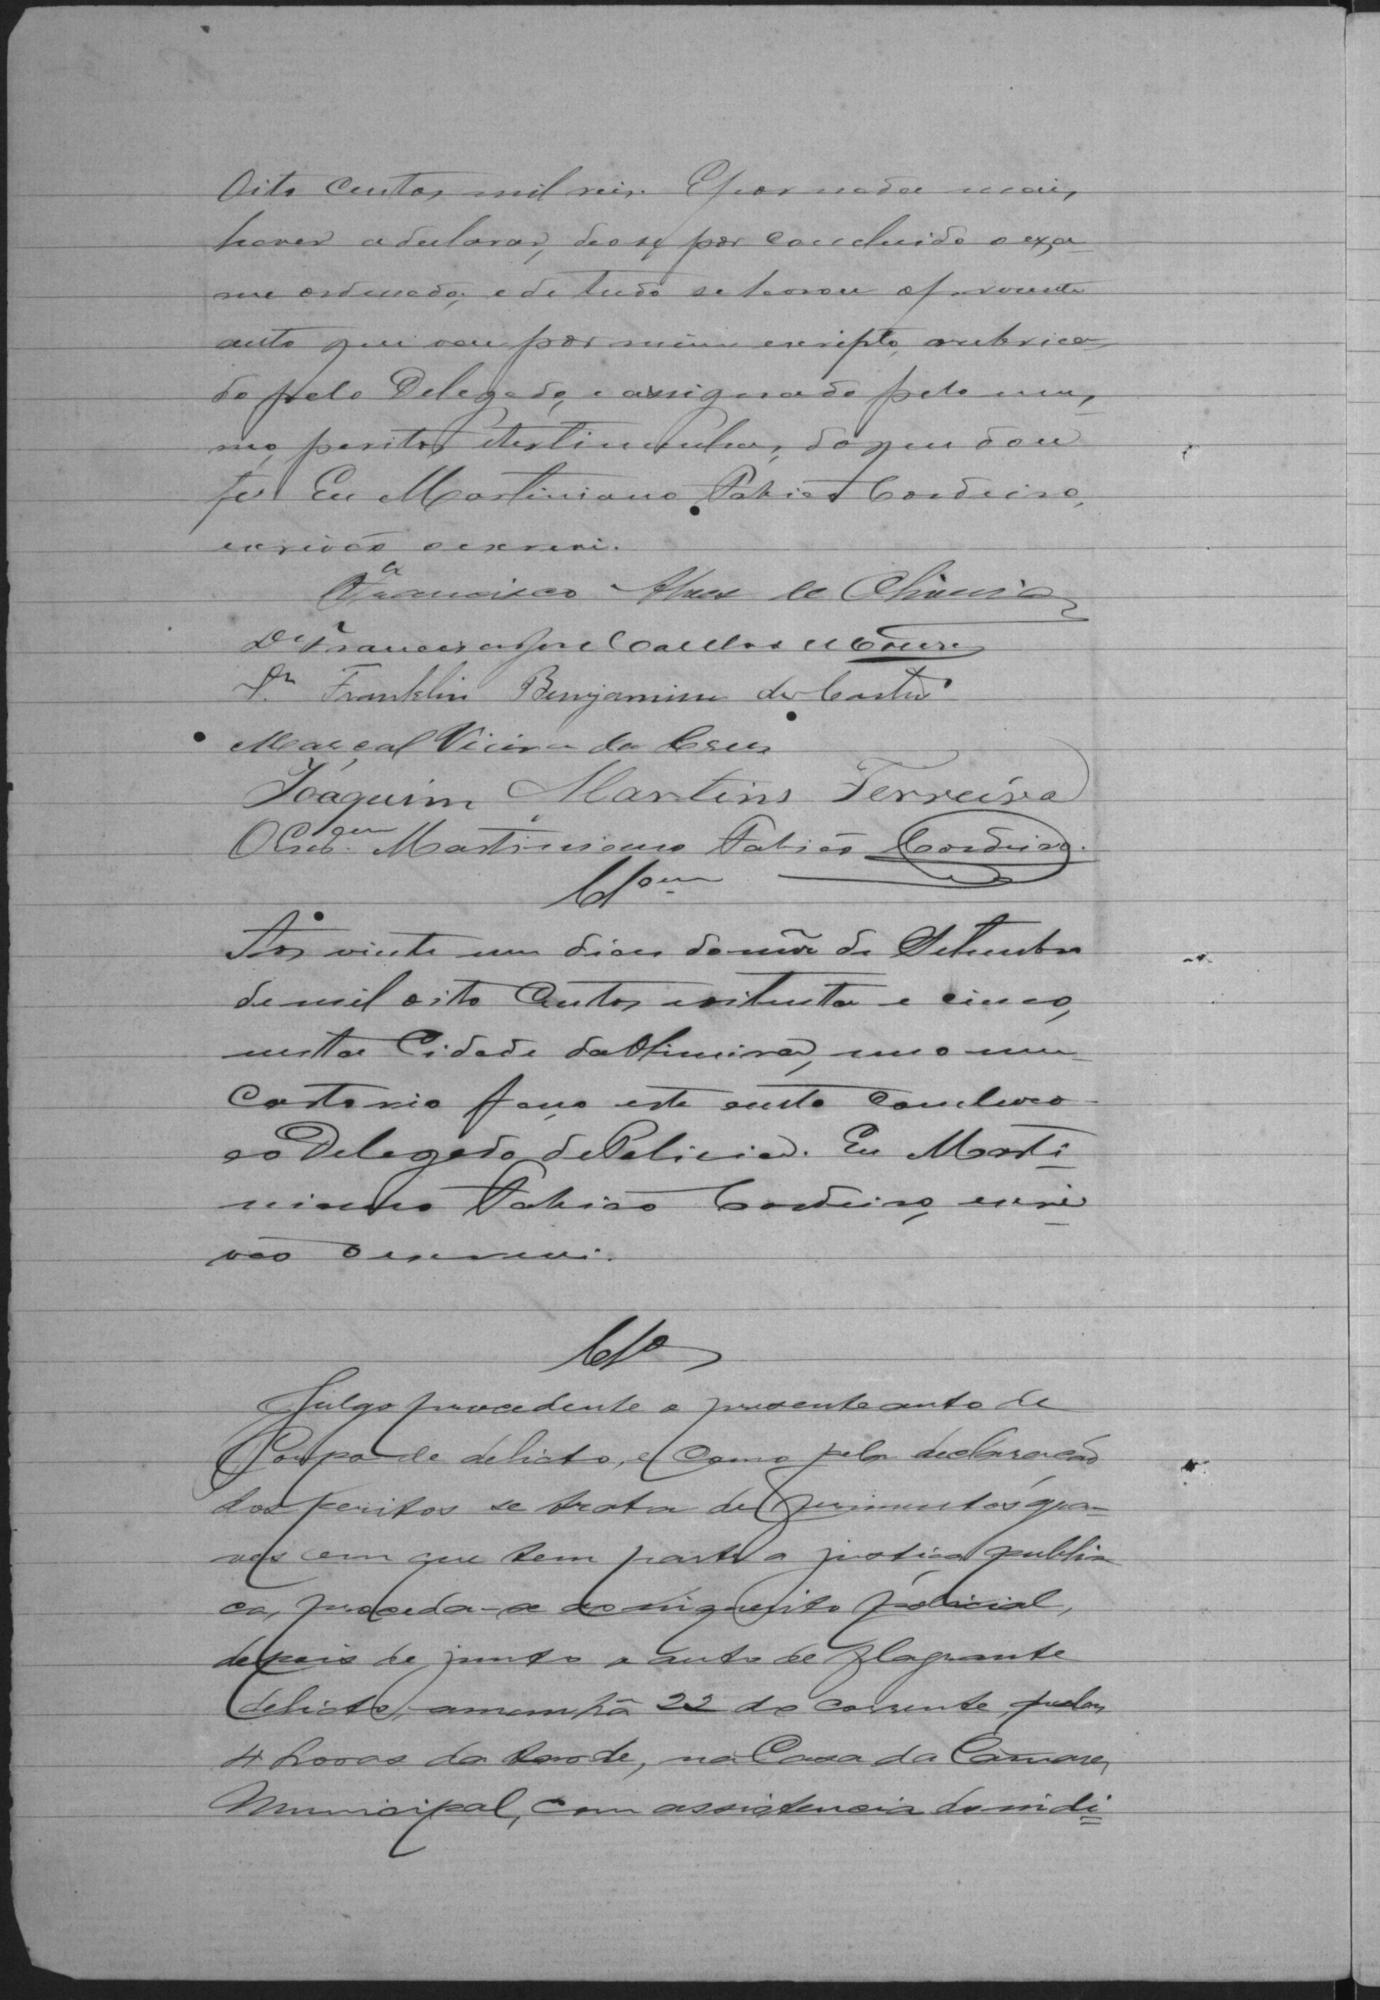 Oito centos mil reis. E por nada mais
haver a declarar, deo se por concluido o exa-
me ordenado, e de tudo se lavrou o presente
auto que vai por mim escripto, rubrica-
do pelo Delegado, e assignado pelo mes-
mo, peritos e testimunhas, do que dou
fé. Eu Martiniano Fabião Cordeiro,
escrivão o escrevi.
Francisco Alves de Oliveira
Dr Francisco José Coelho de Moura
Dr. Franklin Benjamim de Castro
Marçal Vieira da Cruz
Joaquim Martins Ferreira
O Escr.am Martiniano Fabião Cordeiro.
Clsam
Aos vinte um dias do mez de Setembro
de mil oito centos e oitenta e cinco,
nesta Cidade da Limeira, em o meu
Cartorio faço este auto concluso
ao Delegado de Policia. Eu Marti-
niano Fabião Cordeiro, escri-
vão o escrevi.
Clso
Julgo procedente o presente auto de
Corpo de delicto, e como pela declaração
dos peritos se trata de ferimentos gra-
ves em que tem parte a justiça publi-
ca, proceda-se ao inquerito policial,
depois de junto o auto de flagrante
delicto, amanhã 22 do corrente, pelas
4 horas da tarde, na Casa da Camara
Municipal, com assistencia do indi=